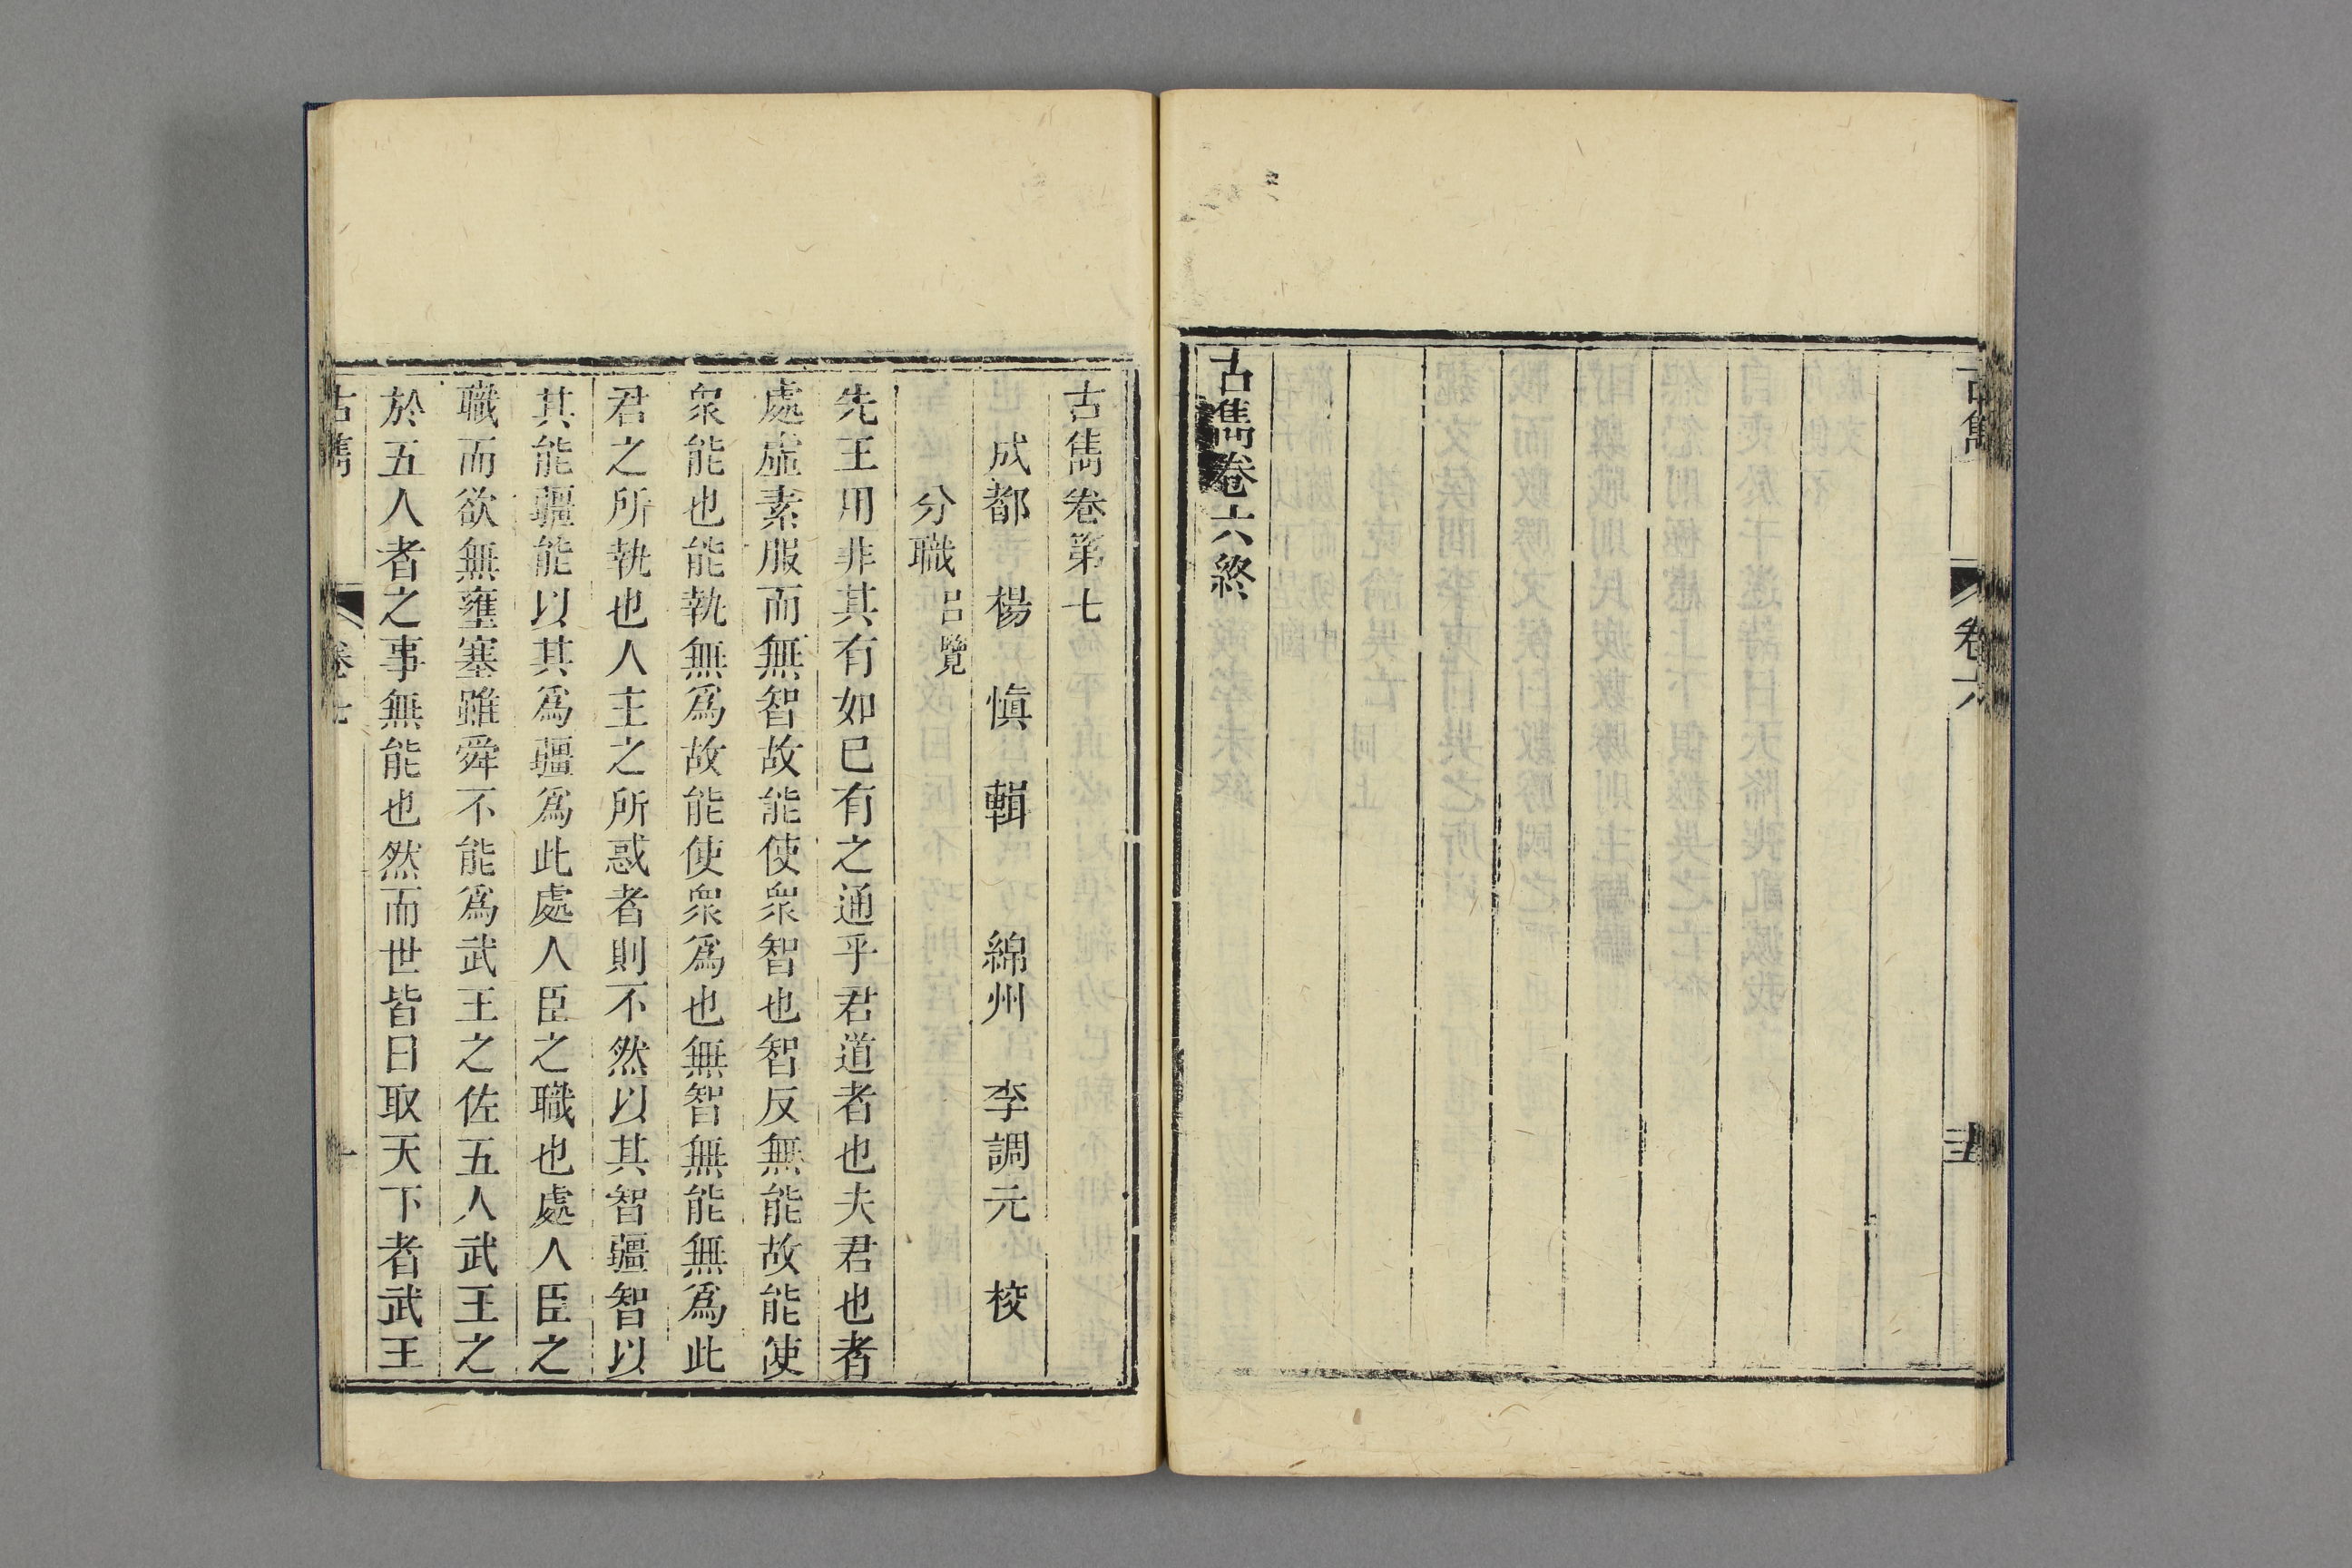 古雋
卷六
古雋卷六終
古雋卷第七
成都 楊 慎 輯 綿州 李調元 校
分職 呂覽
先王用非其有如已有之通乎君道者也夫君也者
處虛素服而無智故能使衆智也智反無能故能使
衆能也能執無爲故能使衆爲也無智無能無爲此
君之所執也人主之所惑者則不然以其智疆智以
其能疆能以其爲疆爲此處人臣之職也處人臣之
職而欲無壅塞雖舜不能爲武王之佐五人武王之
於五人者之事無能也然而世皆曰取天下者武王
古雋
卷七
一